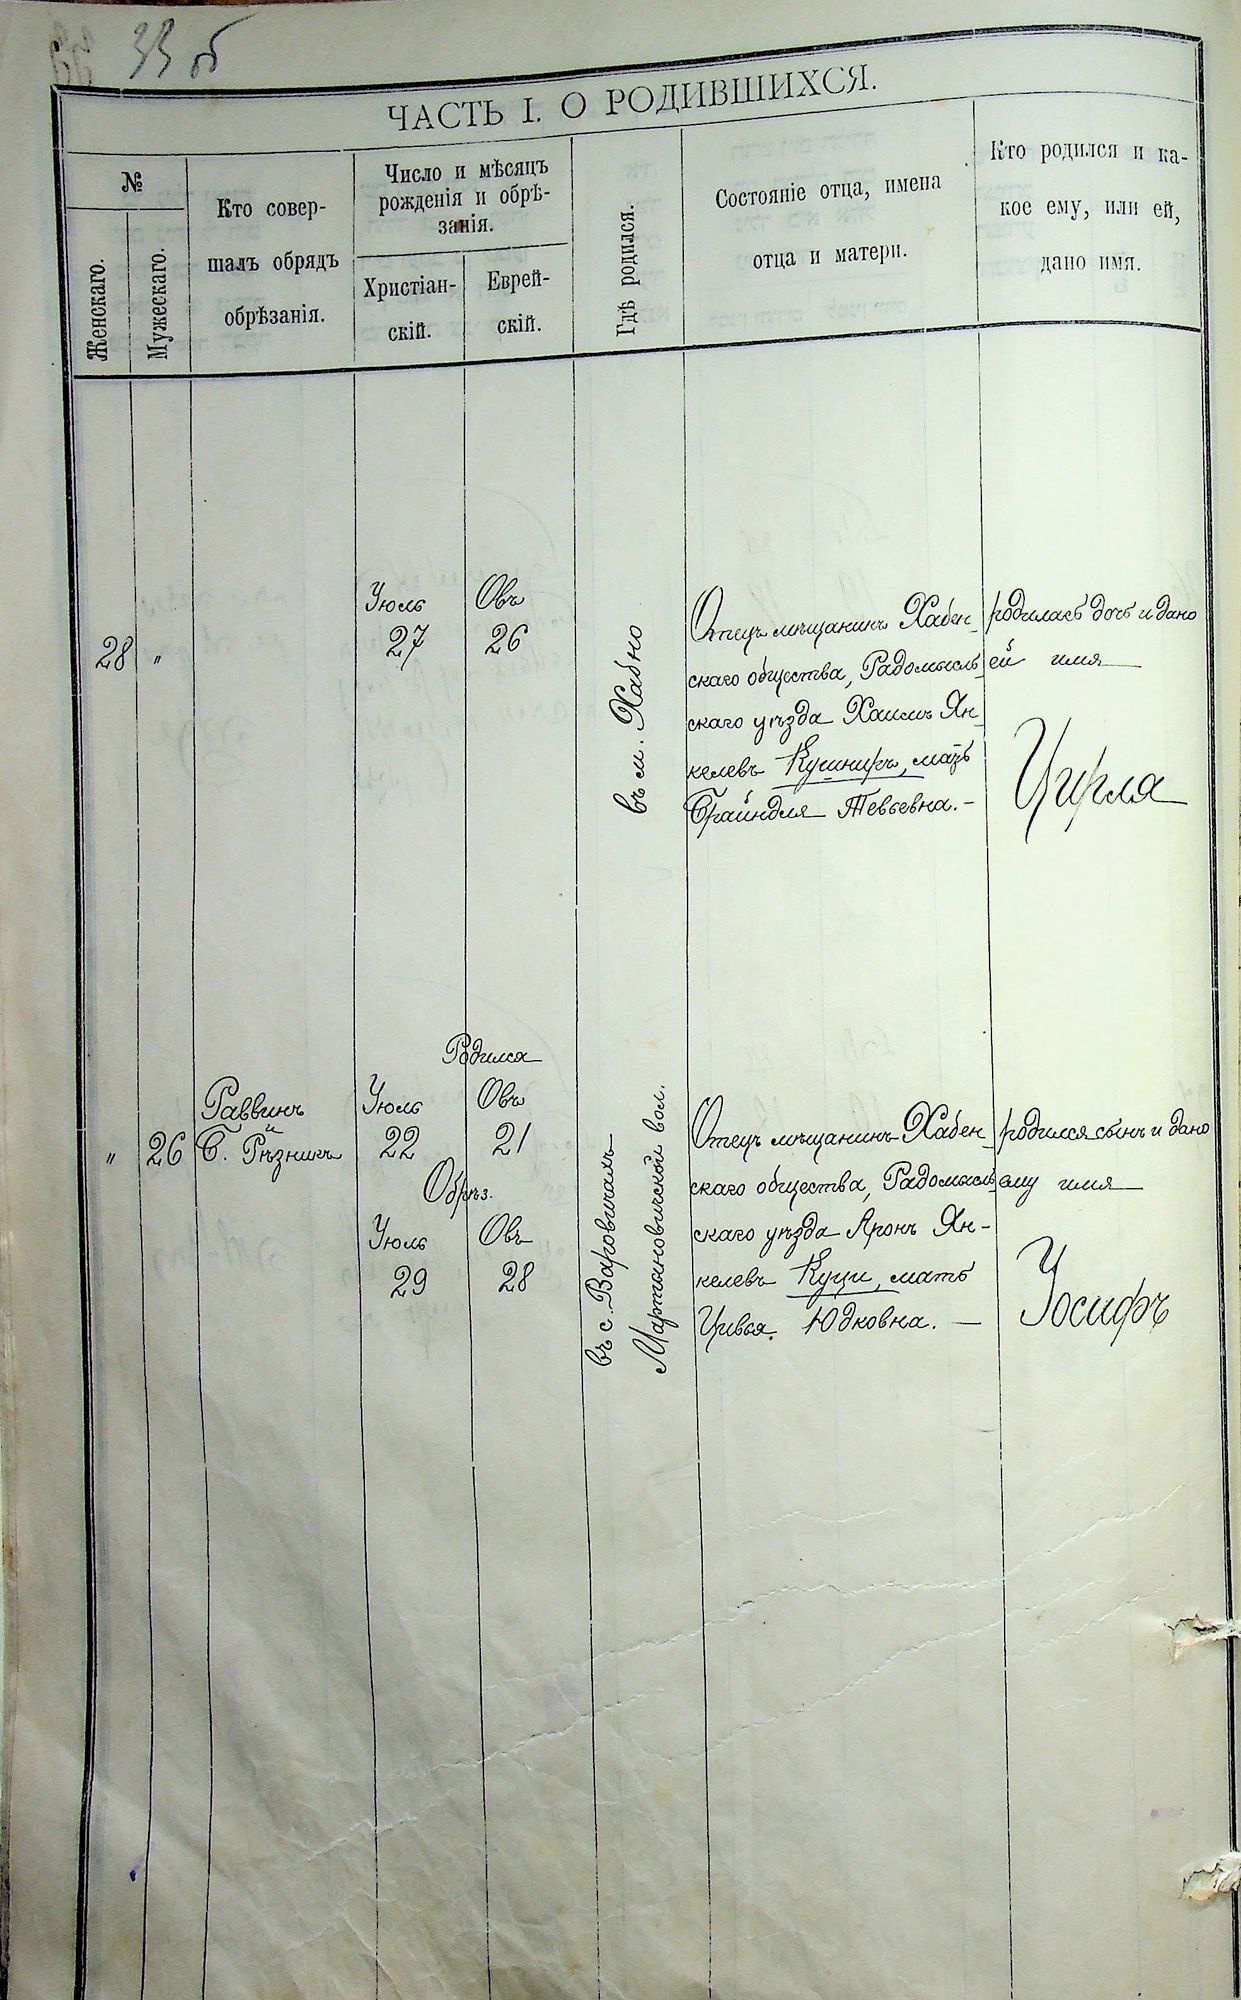 33 об
ЧАСТЬ I. О РОДИВШИХСЯ.
№
Женскаго.
Мужескаго.
Кто совер-
шалъ обрядъ
обрѣзанія.
Число и мѣсяцъ
рожденія и обрѣ-
занія.
Христіан-
скій.
Еврей-
скій.
Гдѣ родился.
Состояніе отца, имена
отца и матери.
Кто родился и ка-
кое ему, или ей,
дано имя.
28 "
Іюль
27
Овъ
26
въ м. Хабно
Отецъ мѣщанинъ Хабен-
скаго общества, Радомысль-
скаго уѣзда Хаимъ Ян-
келевъ Кушниръ, мать
Брайндля Тевьевна. –
родилась дочь и дано
ей имя
Цирля
" 26
Раввинъ
и
Б. Рѣзникъ
Родился
Іюль Овъ
22 21
Обрѣз.
Іюль Овъ
29 28
въ с. Варовичахъ
Мартыновичской вол.
Отецъ мѣщанинъ Хабен-
скаго общества, Радомысль-
скаго уѣзда Аронъ Ян-
келевъ Куци, мать
Цивья Юдковна. –
родился сынъ и дано
ему имя
Іосифъ